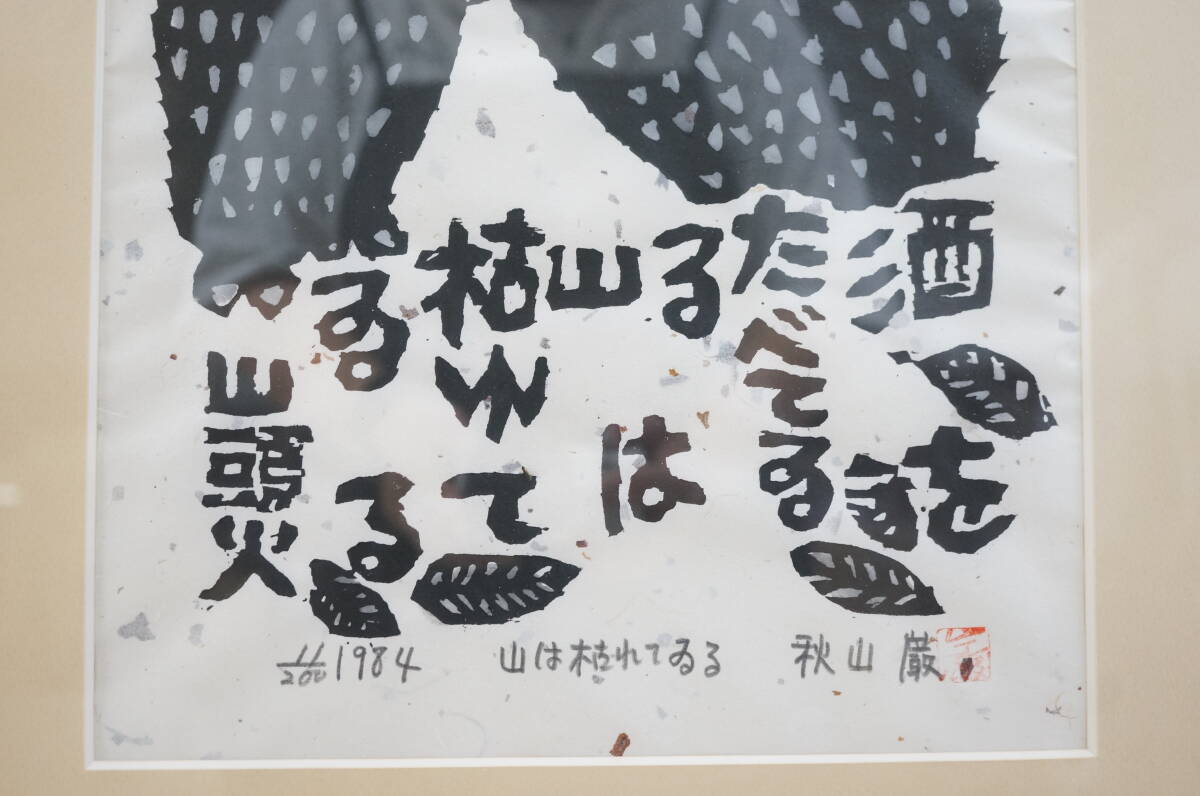 酒を
たべてゐ
る
山は
枯れて
ゐる
山頭火
11/200 1984 山は枯れてゐる 秋山 巌